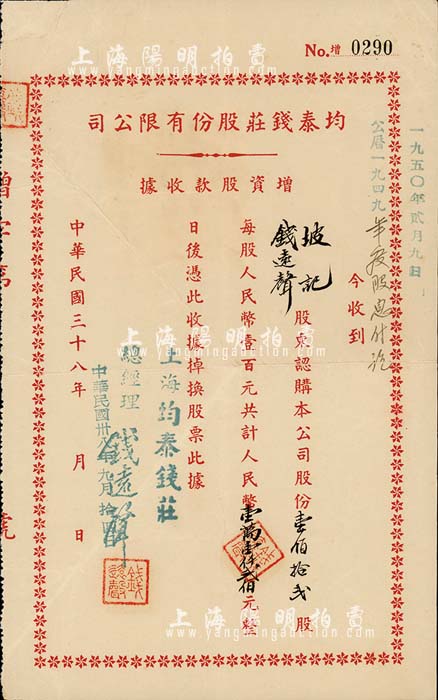 上海陽明拍賣
www.yangmingauction.com
No. 增 0290
均泰錢莊股份有限公司
增資股款收據
一九五〇年貳月九日
公曆一九四九年度股息付訖
今收到
坡記
錢遠聲
股東認購本公司股份壹佰拾弍股
每股人民幣壹百元共計人民幣壹萬壹仟弍佰元整
日後憑此收據掉換股票此據
上海均泰錢莊
總經理
錢遠聲
中華民國三十八年 月 日
中華民國卅八年九月拾四
上海陽明拍賣
www.yangmingauction.com
上海陽明拍賣
www.yangmingauction.com